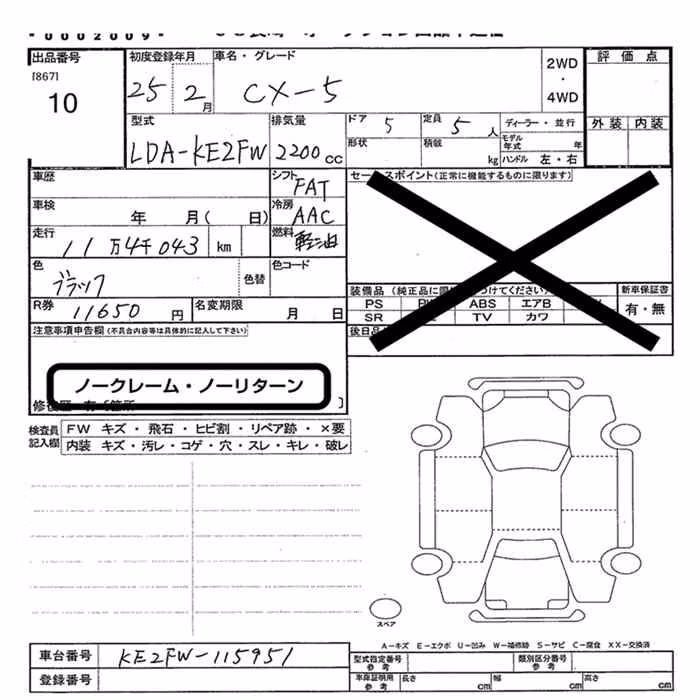 *0002009*
出品番号 初度登録年月 車名・グレード 2WD・4WD 評価点
[867]
10 25 2月 CX-5
型式 排気量 ドア 5 定員 5人 ディーラー・並行 外装 内装
LDA-KE2FW 2200cc 形状 積載 kg モデル年式 年 ハンドル 左・右
車歴 シフト FAT セールスポイント(正常に機能するものに限ります)
車検 年 月( 日) 冷房 AAC
走行 11万4千043 km 燃料 軽油
色 ブラック 色替 色コード
装備品 (純正品に限 つけてください) 新車保証書
PS ABS エアB 有・無
SR TV カワ
R券 11650円 名変期限 月 日
後日品
注意事項申告欄(不具合内容等は具体的に記入して下さい)
ノークレーム・ノーリターン
検査員記入欄 FW キズ・飛石・ヒビ割・リペア跡・×要
内装 キズ・汚レ・コゲ・穴・スレ・キレ・破レ
スペア
A-キズ E-エクボ U-凹み W-補修跡 S-サビ C-腐食 XX-交換済
車台番号 KE2FW-115951 型式指定番号参考 類別区分番号参考
登録番号 車庫証明用参考 長さ cm 幅 cm 高さ cm